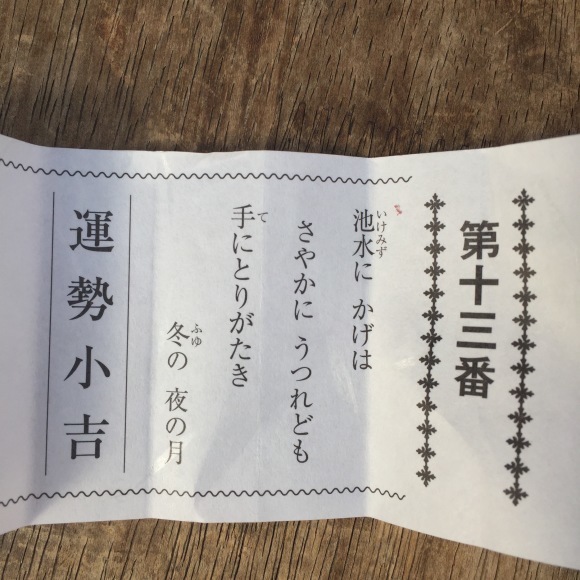 第十三番
池水に かげは
さやかに うつれども
手にとりがたき
冬の 夜の月
運勢小吉